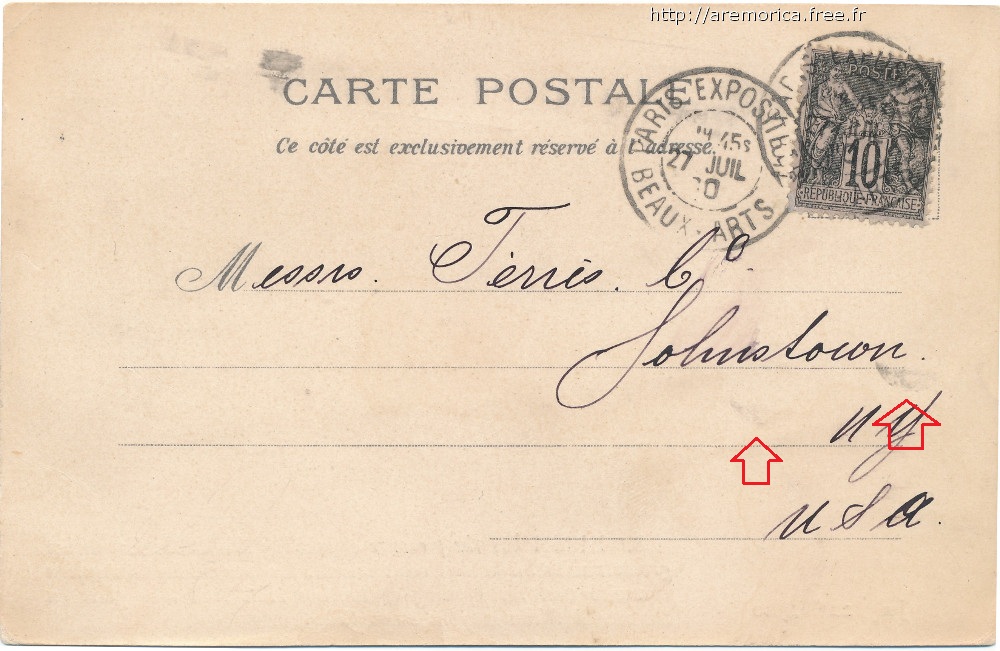 http://aremorica.free.fr
CARTE POSTALE
Ce côté est exclusivement réservé à l'adresse.
PARIS. EXPOSITION
45s
27 JUIL
BEAUX-ARTS
POSTE
10
REPUBLIQUE FRANÇAISE
Messrs. Ferris. Co.
Johnstown.
NY
USA.